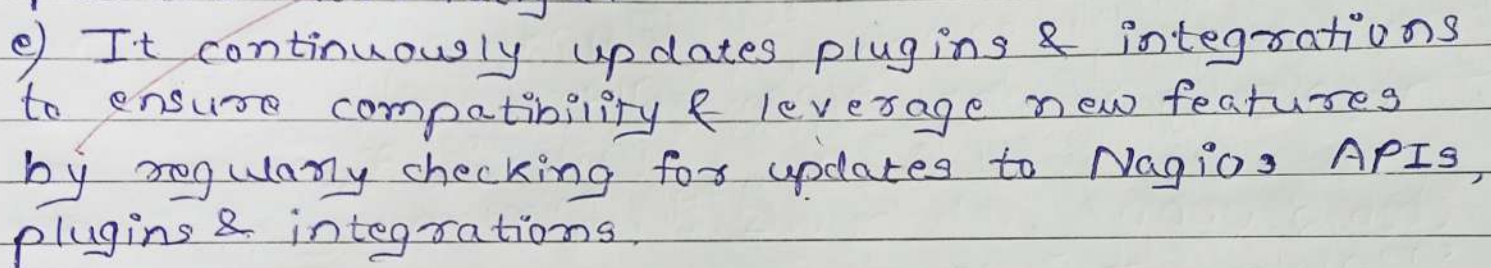 e) It continuously updates plugins & integrations
to ensure compatibility & leverage new features
by regularly checking for updates to Nagios APIs,
plugins & integrations.